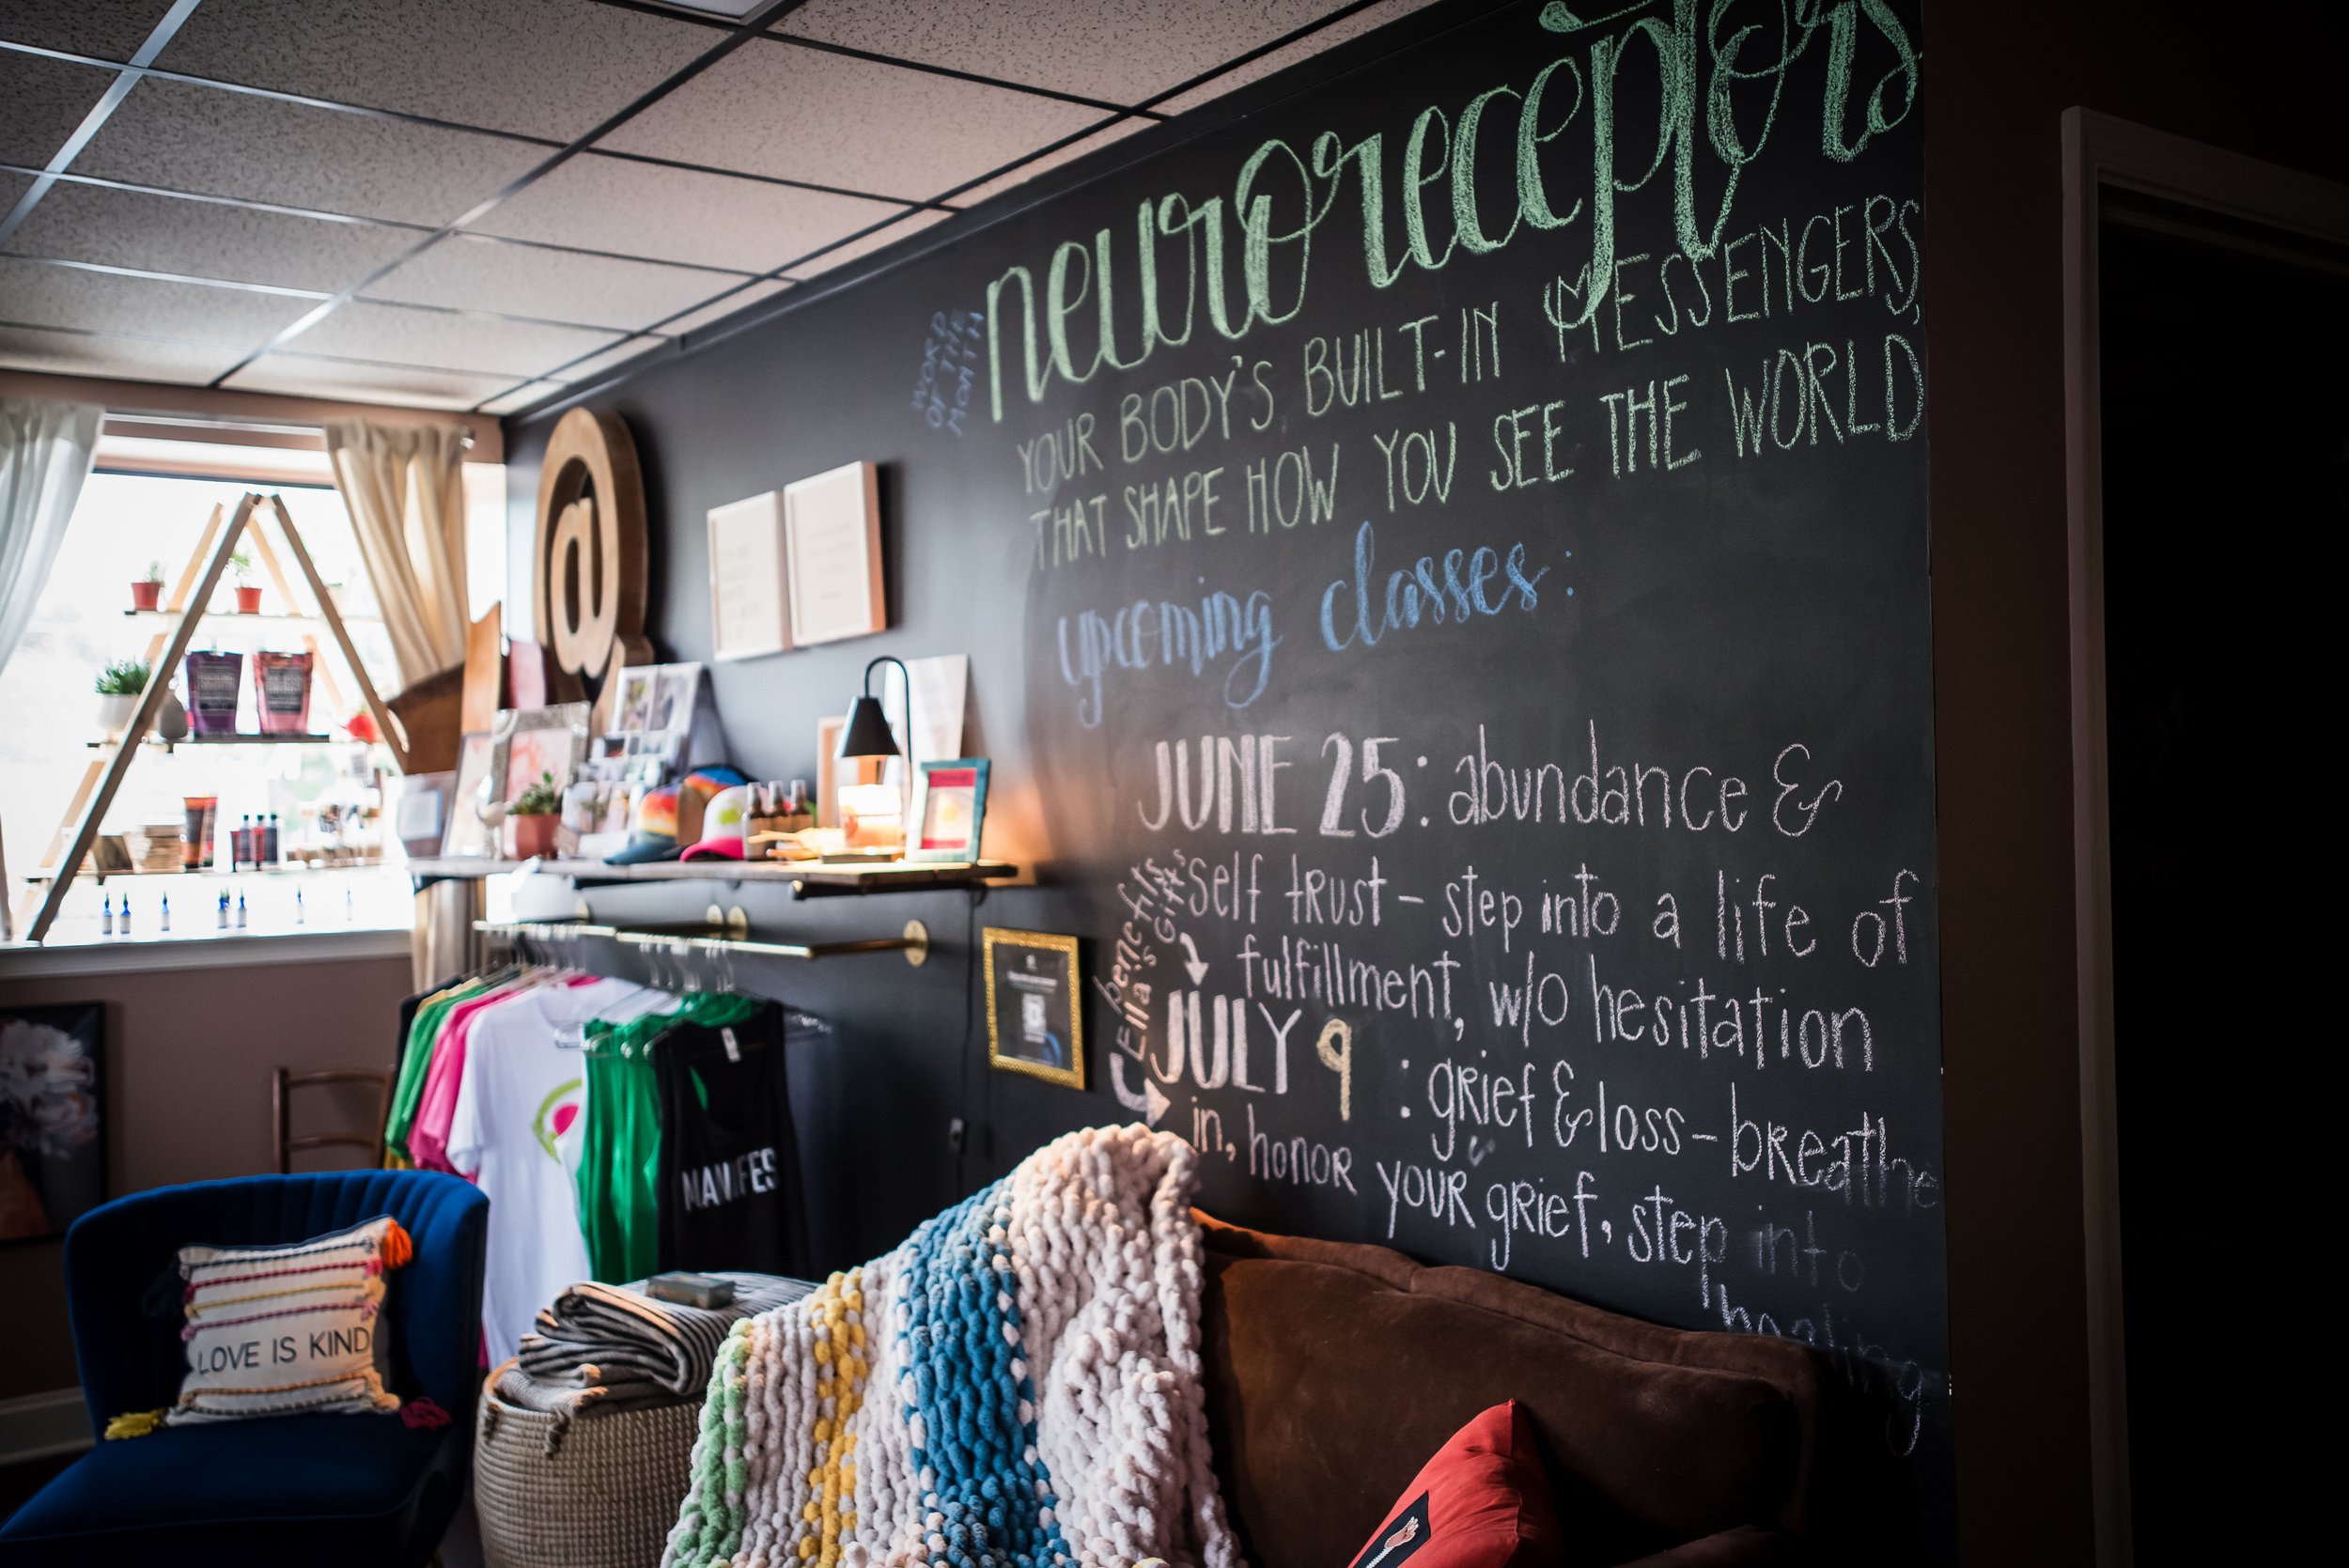 WORD
OF THE
MONTH
neuroreceptors
YOUR BODY'S BUILT-IN MESSENGERS,
THAT SHAPE HOW YOU SEE THE WORLD
upcoming classes:
JUNE 25: abundance &
self trust - step into a life of
fulfillment, w/o hesitation
benefits
Ella's Gifts
JULY 9 : grief & loss - breathe
in, honor your grief, step into
healing
MANIFES
LOVE IS KIND
@